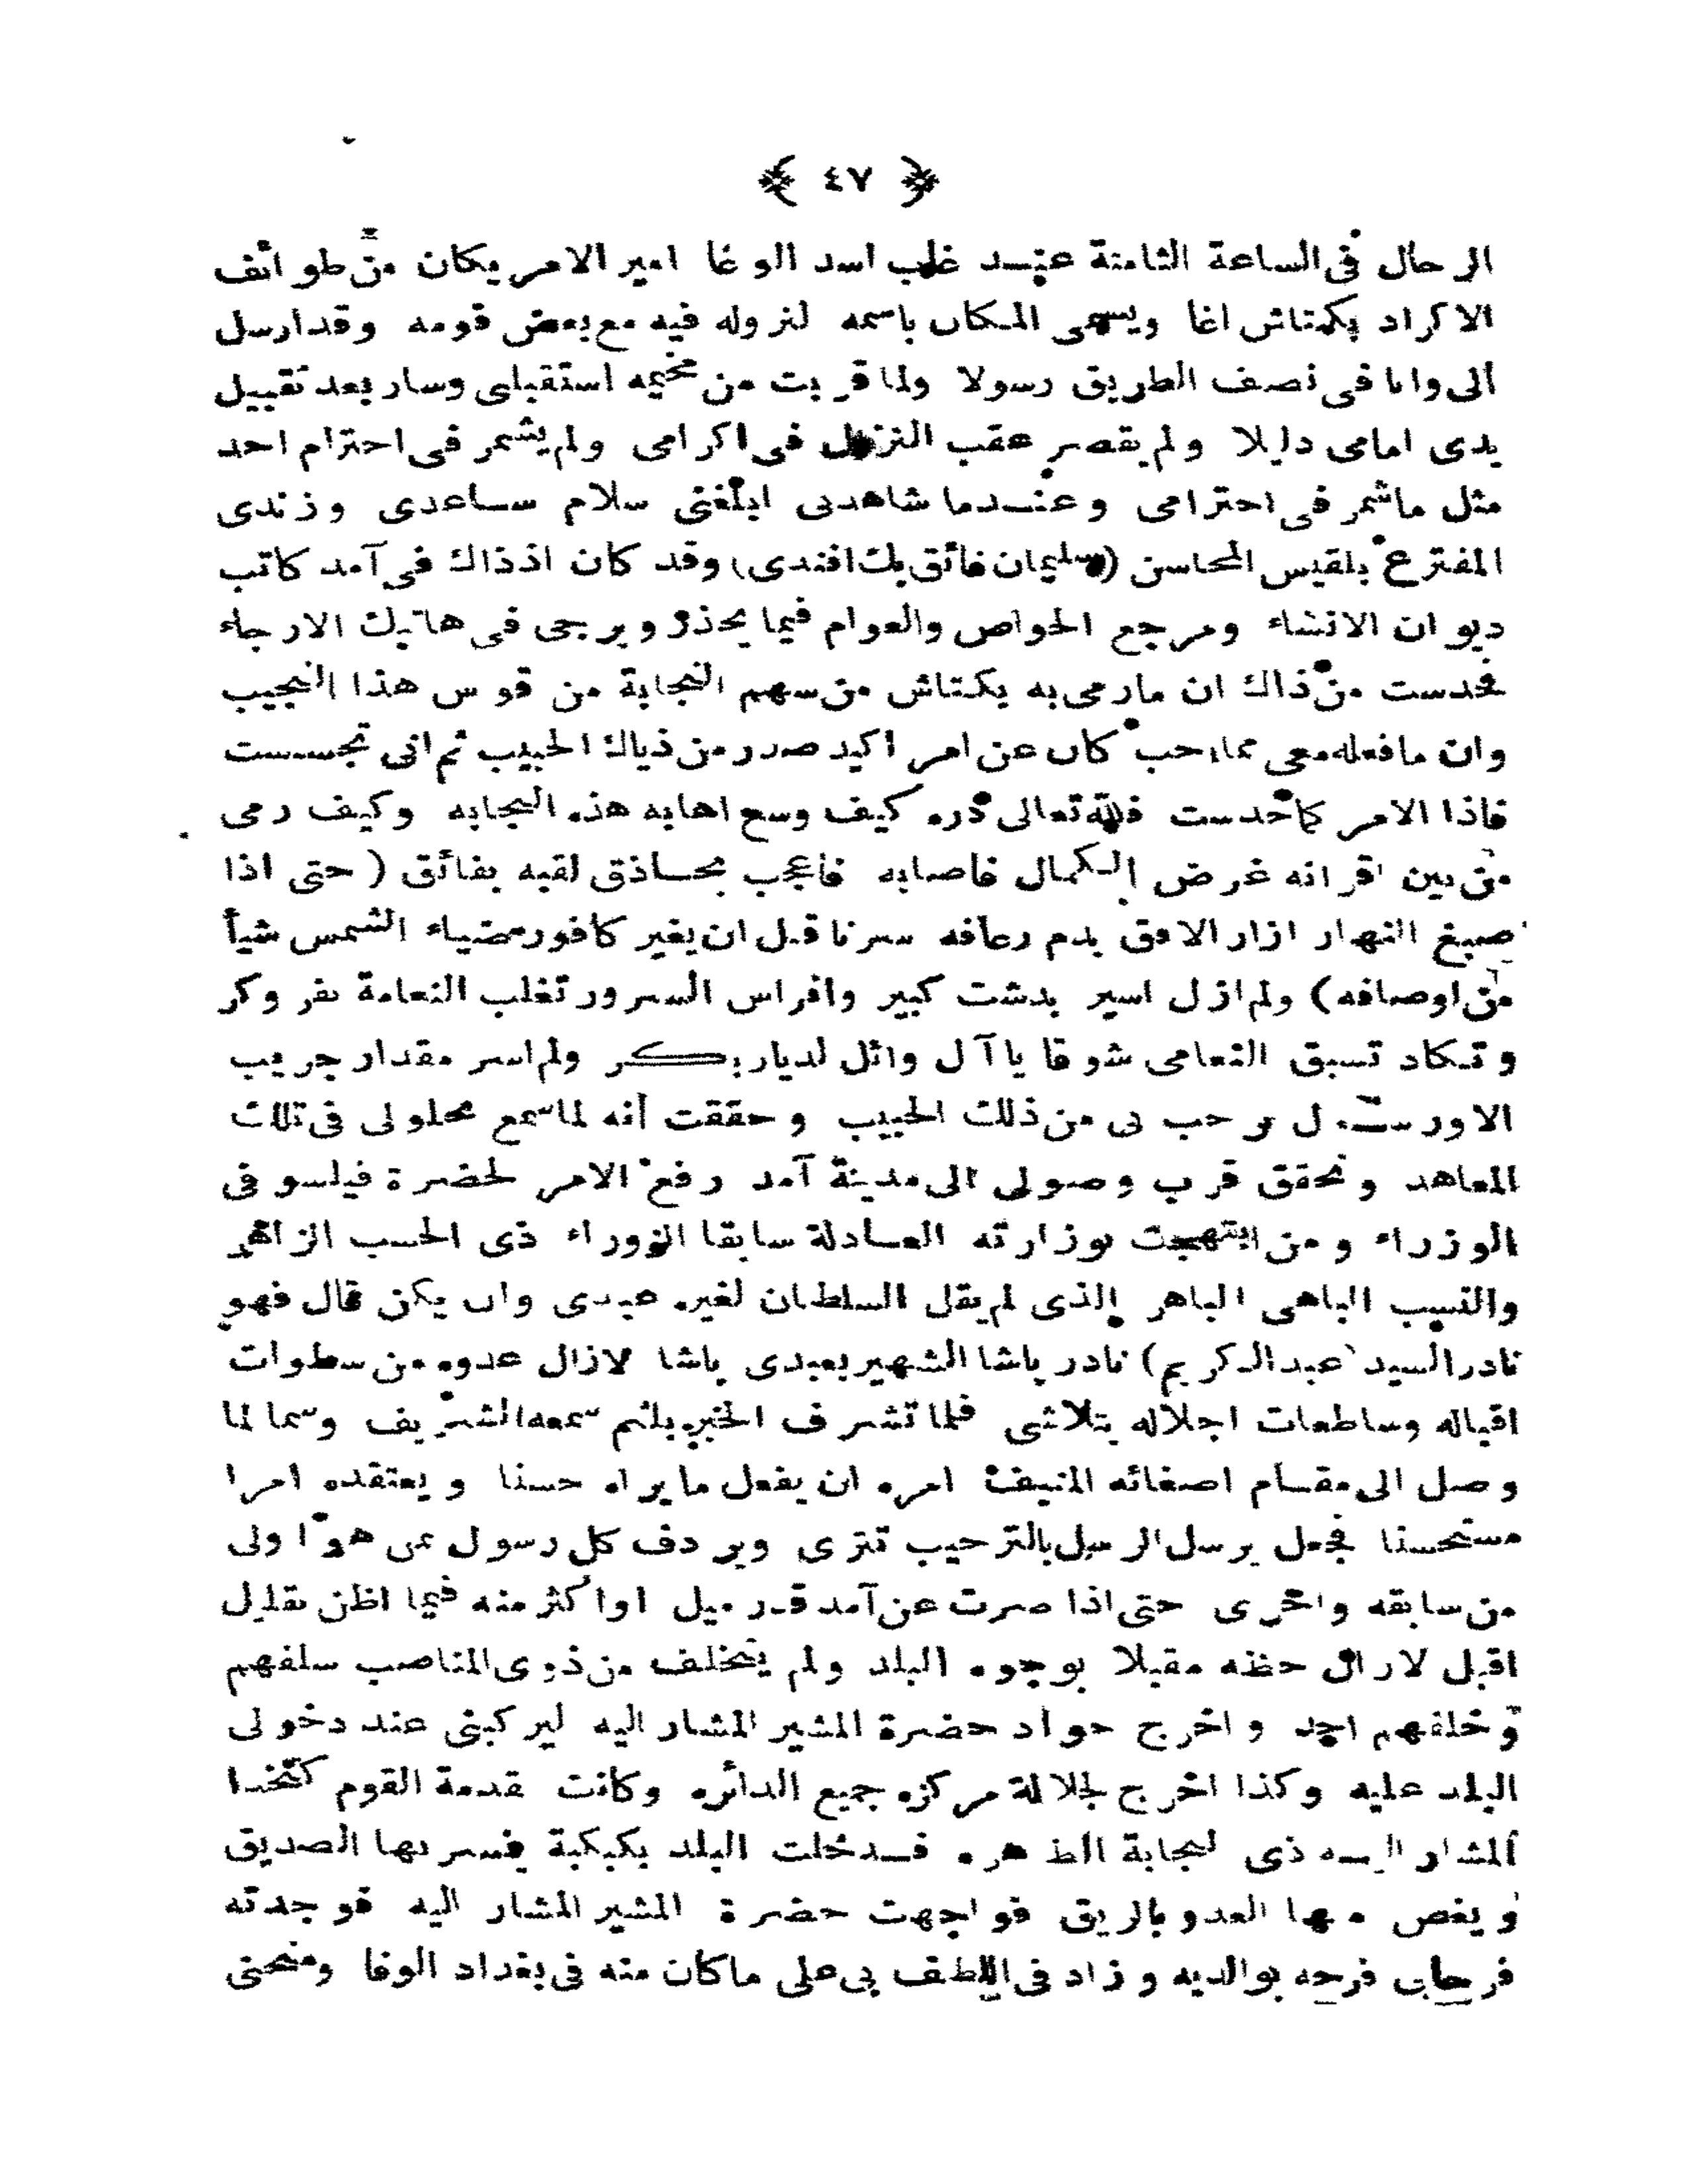 ﴿ ٤٧ ﴾
الرحال فى الساعة الثامنة عند غلب اسد الوغا امير الامر يكان من طوائف
الاكراد بكمتاش اغا ويسمى المكان باسمه لنزوله فيه مع بعض قومه وقد ارسل
الى وانا فى نصف الطريق رسولا ولما قربت من مخيمه استقبلى وسار بعد تقبيل
يدى امامى دليلا ولم يقصر عقب النزول فى اكرامى ولم يشمر فى احترام احد
مثل ماشمر فى احترامى وعندما شاهدنى ابلغنى سلام ساعدى وزندى
المفترع بلقيس المحاسن (سليمان فائق بك افندى) وقد كان اذذاك فى آمد كاتب
ديوان الانشاء ومرجع الخواص والعوام فيما يحذر ويرجى فى هاتيك الارجاء
فحدست من ذاك ان مارمى به يكتاش من سهم النجابة من قوس هذا النجيب
وان مافعله معى مما احب كان عن امر اكيد صدر من ذياك الحبيب ثم انى تجسست
فاذا الامر كماحدست فلله تعالى دره كيف وسع اهابه هذه النجابه وكيف رمى
من بين اقرانه غرض الكمال فاصابه فاعجب بحاذق لقبه بفائق (حتى اذا
صبغ النهار ازار الافق بدم رعافه سرنا قبل ان يغير كافور ضياء الشمس شيأ
من اوصافه) ولم ازل اسير بدشت كبير وافراس السرور تغلب النعامة بفر وكر
وتكاد تسبق النعامى شوقا ياآل وائل لديار بكر ولم اسر مقدار جريب
الا ورسول يرحب بى من ذلك الحبيب وحققت أنه لماسمع بحلولى فى تلك
المعاهد وتحقق قرب وصولى الى مدينة آمد رفع الامر لحضرة فيلسوفى
الوزراء ومن ابتهجت بوزارته العادلة سابقا الزوراء ذى الحسب الزاهر
والنسب الباهى الباهر الذى لم يقل السلطان لغيره عبدى وان يكن قال فهو
نادر السيد (عبد الكريم) نادر باشا الشهير بعبدى باشا لازال عدوه من سطوات
اقباله وساطعات اجلاله يتلاشى فلما تشرف الخبر بلثم سمعه الشريف وسما لما
وصل الى مقام اصغائه المنيف امره ان يفعل مايراه حسنا ويعتقده امرا
مستحسنا فجعل يرسل الرسل بالترحيب تترى ويردف كل رسول بمن هو اولى
من سابقه واحرى حتى اذا صرت عن آمد قدر ميل او اكثر منه فيما اظن بقليل
اقبل لازال حظه مقبلا بوجوه البلد ولم يتخلف من ذوى المناصب سلفهم
وخلفهم احد واخرج جواد حضرة المشير المشار اليه ليركبنى عند دخولى
البلد عليه وكذا اخرج لجلالة مركزه جميع الدائره وكانت مقدمة القوم كتخدا
المشار اليه ذى النجابة الظاهره فدخلت البلد بكبكبة يسر بها الصديق
ويغص منها العدو بالريق فواجهت حضرة المشير المشار اليه فوجدته
فرحابى فرحه بوالديه وزاد فى اللطف بى على ماكان منه فى بغداد الوفا ومنحنى